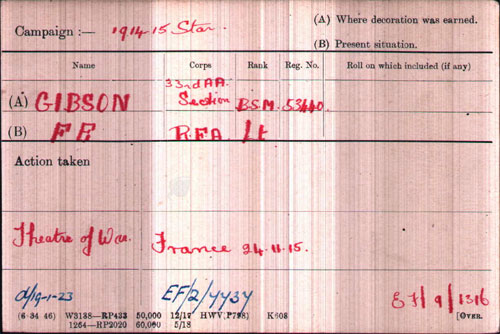 Campaign :— 1914-15 Star.
(A) Where decoration was earned.
(B) Present situation.
Name Corps Rank Reg. No. Roll on which included (if any)
33rd AA.
(A) GIBSON Section B.S.M. 53440
(B) F E R.F.A Lt
Action taken
Theatre of War. France 24.11.15.
d/19-1-23 EF/2/7737 EF/9/1316
(6 34 46) W3138—RP433 50,000 12/17 HWV(P798) K608 [OVER.
1254—RP2020 60,000 5/18